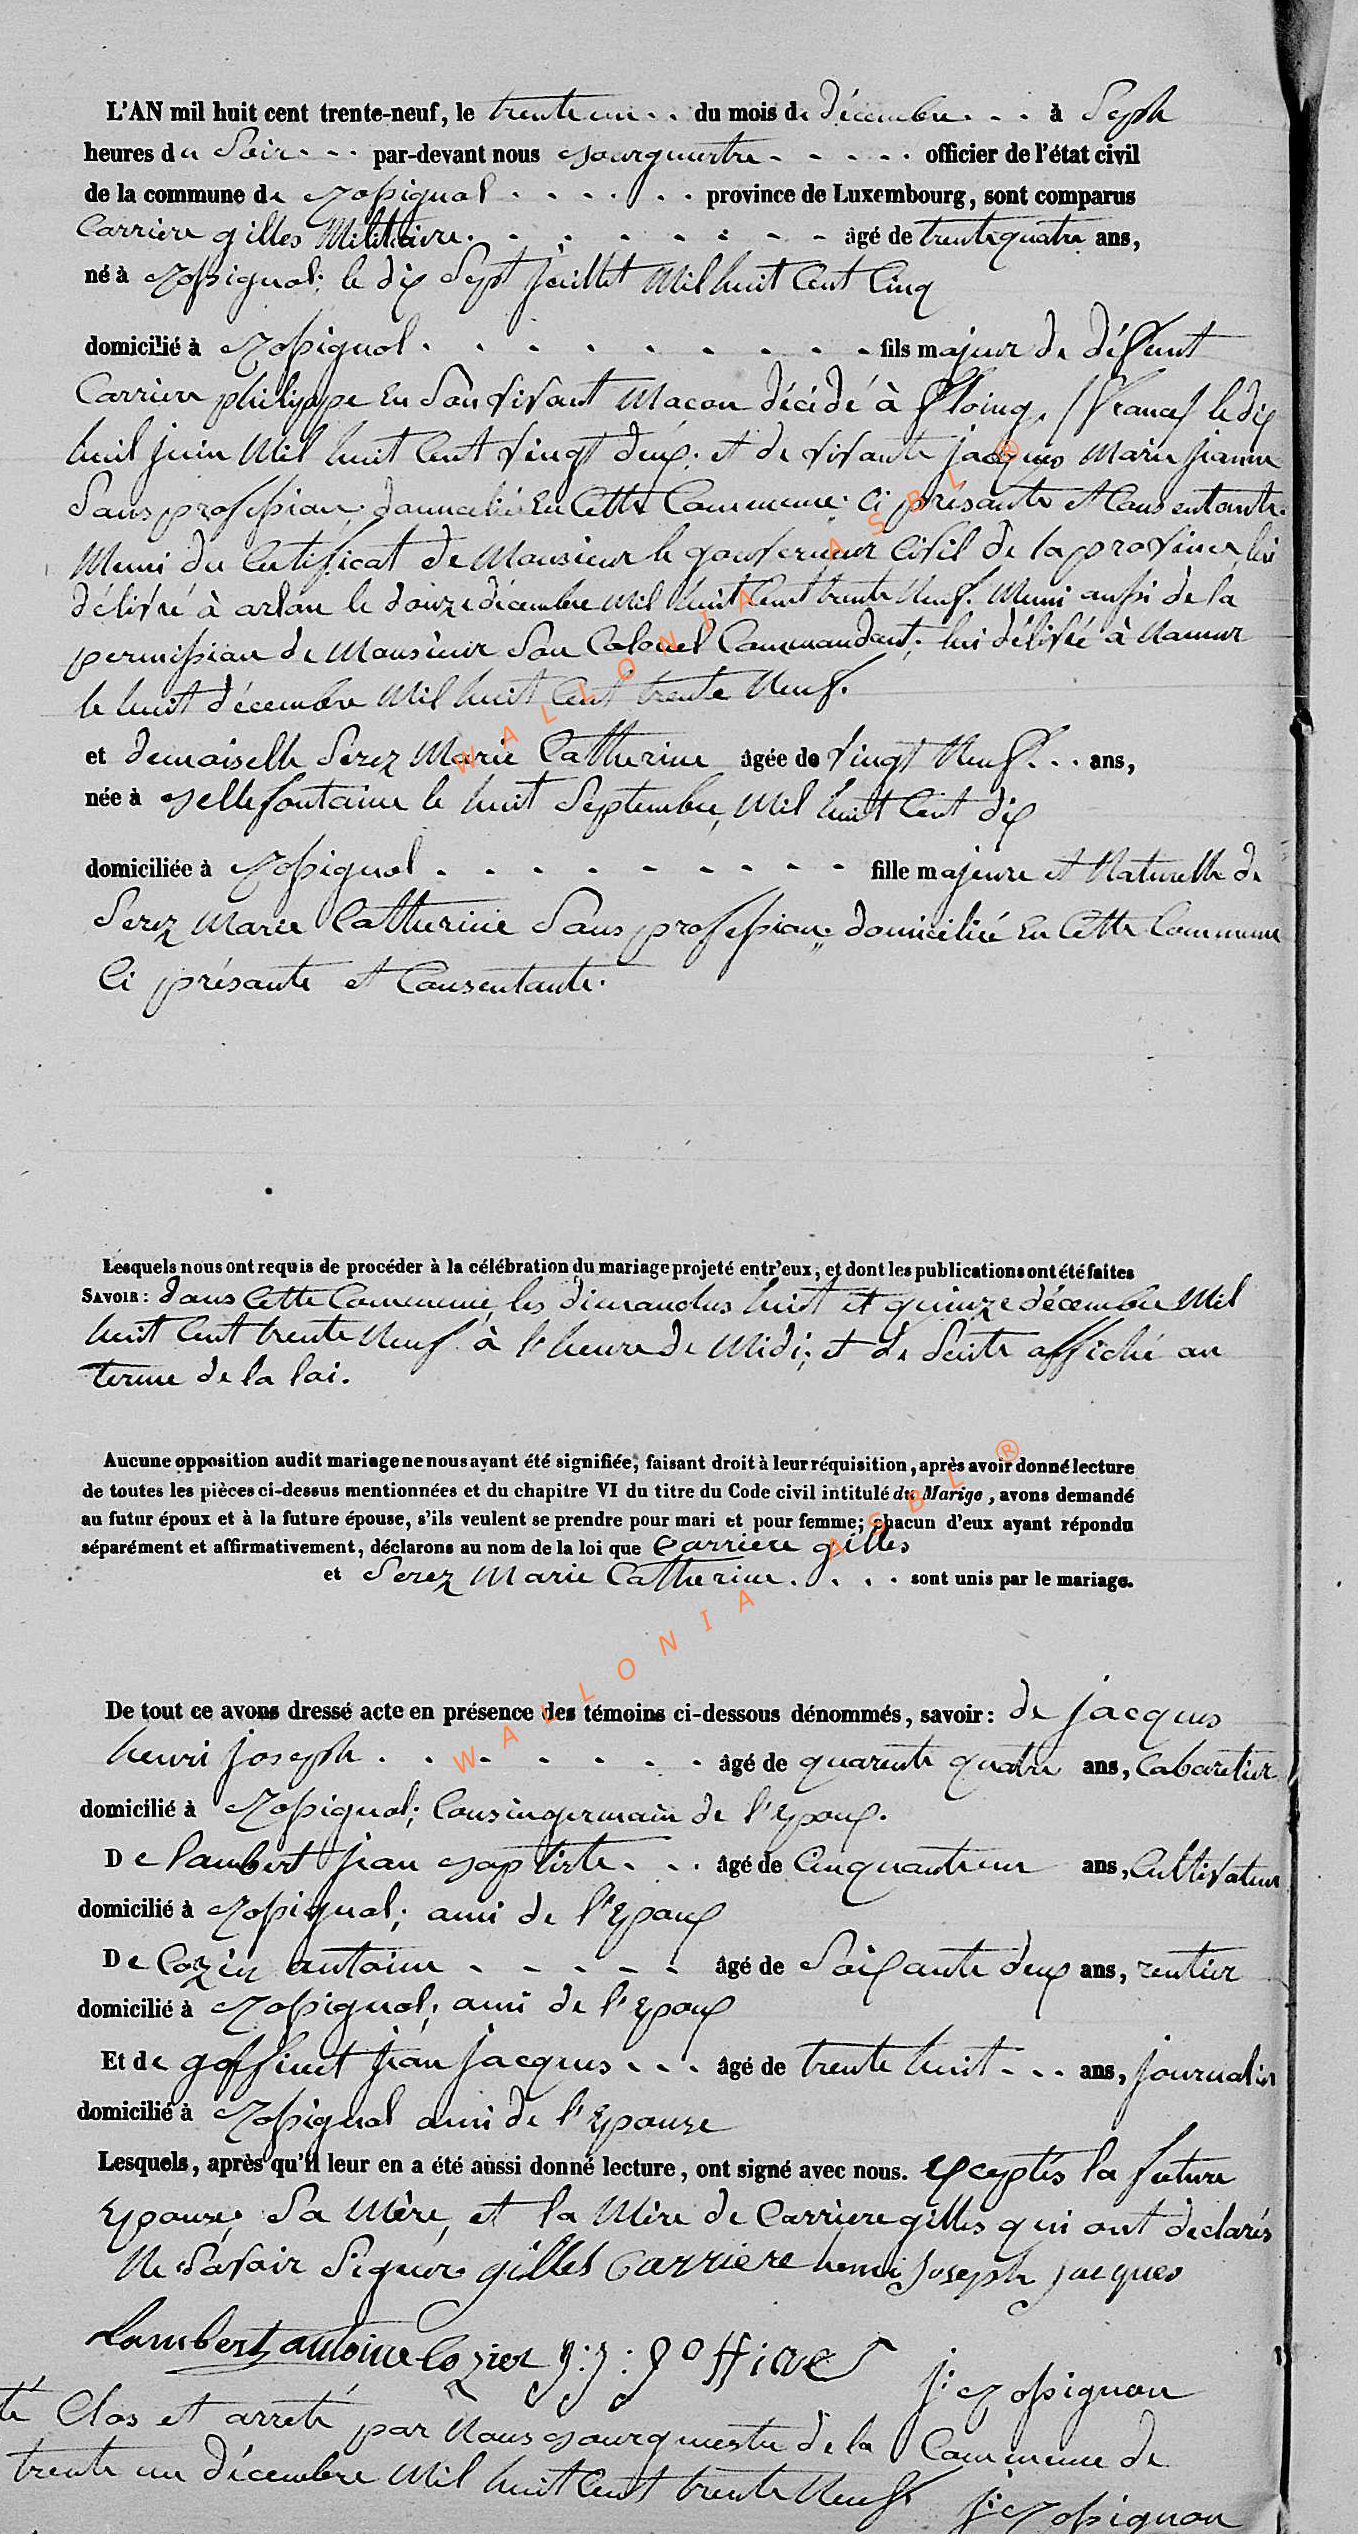 L'AN mil huit cent trente-neuf, le trente un .. du mois de décembre ... à Sept
heures du Soir ... par-devant nous Bourguestre ..... officier de l'état civil
de la commune de Rossignol ...... province de Luxembourg, sont comparus
Carriere gilles Militaire ........ âgé de trente quatre ans,
né à Rossignol; le dix Sept juillet Mil huit Cent Cinq
domicilié à Rossignol ......... fils majeur de défunt
Carriere philippe En Son vivant Macon décédé à floing, (france) le dix
huit juin Mil huit Cent vingt deux; et de vivante jacques Marie jeanne
Sans profession; domiciliée En Cette Commune. Ci présante et Consentante.
Muni du Certificat de Monsieur le gouverneur Civil de la province, lui
délivré à arlon le douze décembre Mil huit Cent trente Neuf. Muni aussi de la
permission de Monsieur Son Colonel Commandant; lui délivré à Namur
le huit décembre Mil huit Cent trente Neuf.
et demoiselle Serez Marie Catherine âgée de vingt Neuf ... ans,
née à Bellefontaine le huit Septembre, Mil huit Cent dix
domiciliée à Rossignol ......... fille majeure et Naturelle de
Serez Marie Catherine Sans profession; domiciliée En Cette Commune
Ci présante et Consentante.
Lesquels nous ont requis de procéder à la célébration du mariage projeté entr'eux, et dont les publications ont été faites
SAVOIR: dans Cette Commune, les dimanches huit et quinze décembre Mil
huit Cent trente Neuf à l'heure de Midi; et de Suite affiché au
terme de la loi.
Aucune opposition audit mariage ne nous ayant été signifiée; faisant droit à leur réquisition, après avoir donné lecture
de toutes les pièces ci-dessus mentionnées et du chapitre VI du titre du Code civil intitulé du Marige, avons demandé
au futur époux et à la future épouse, s'ils veulent se prendre pour mari et pour femme; chacun d'eux ayant répondu
séparément et affirmativement, déclarons au nom de la loi que Carriere gilles
et Serez Marie Catherine .... sont unis par le mariage.
De tout ce avons dressé acte en présence des témoins ci-dessous dénommés, savoir: de jacques
henri joseph ........ âgé de quarente quatre ans, Cabaretier
domicilié à Rossignol; Cousin germain de l'Epoux.
De lambert jean Baptiste ... âgé de Cinquante un ans, Cultivateur
domicilié à Rossignol; ami de l'Epoux
De Cozier antoine ..... âgé de Soixante deux ans, rentier
domicilié à Rossignol; ami de l'Epoux
Et de goffinet jean jacques ... âgé de trente huit ... ans, journalier
domicilié à Rossignol ami de l'Epouse
Lesquels, après qu'il leur en a été aussi donné lecture, ont signé avec nous. Exceptés la future
Epouse; Sa Mère, et la Mère de Carriere gilles qui ont declarés
Ne Savoir Signér. gilles Carriere henri Joseph jacques
Lambert antoine Cozier J: J: goffinet J: Rossignon
té Clos et arreté par Nous Bourguestre de la Commune de
trente un décembre Mil huit Cent trente Neuf. J: Rossignon
WALLONIA ASBL ®
WALLONIA ASBL ®